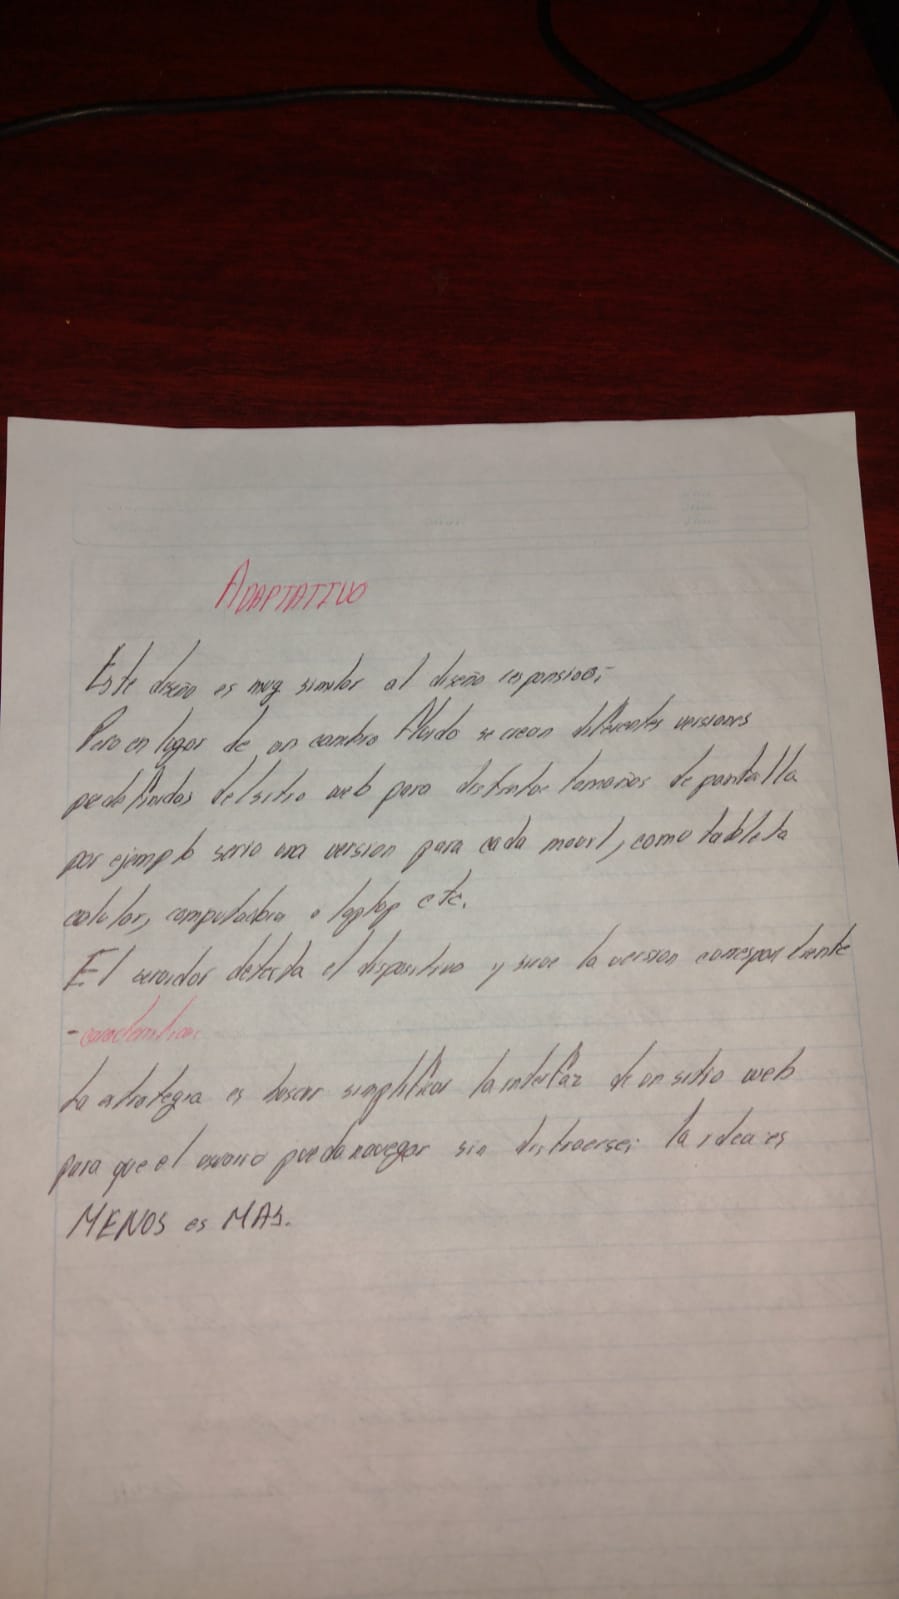 ADAPTATIVO
Este diseño es muy similar al diseño responsivo;
Pero en lugar de un cambio fluido se crean diferentes versiones
predefinidas del sitio web para distintos tamaños de pantalla
por ejemplo seria una version para cada movil, como tableta
celular, computadora o laptop etc.
El servidor detecta el dispositivo y sirve la version correspondiente
- caracteristicas
La estrategia es buscar simplificar la interfaz de un sitio web
para que el usuario pueda navegar sin distraerse; la idea es
MENOS es MAS.